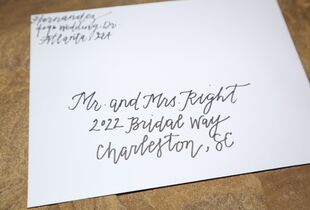 Hernandez
Wedding Dr
Atlanta, GA
Mr. and Mrs. Right
2022 Bridal Way
Charleston, SC